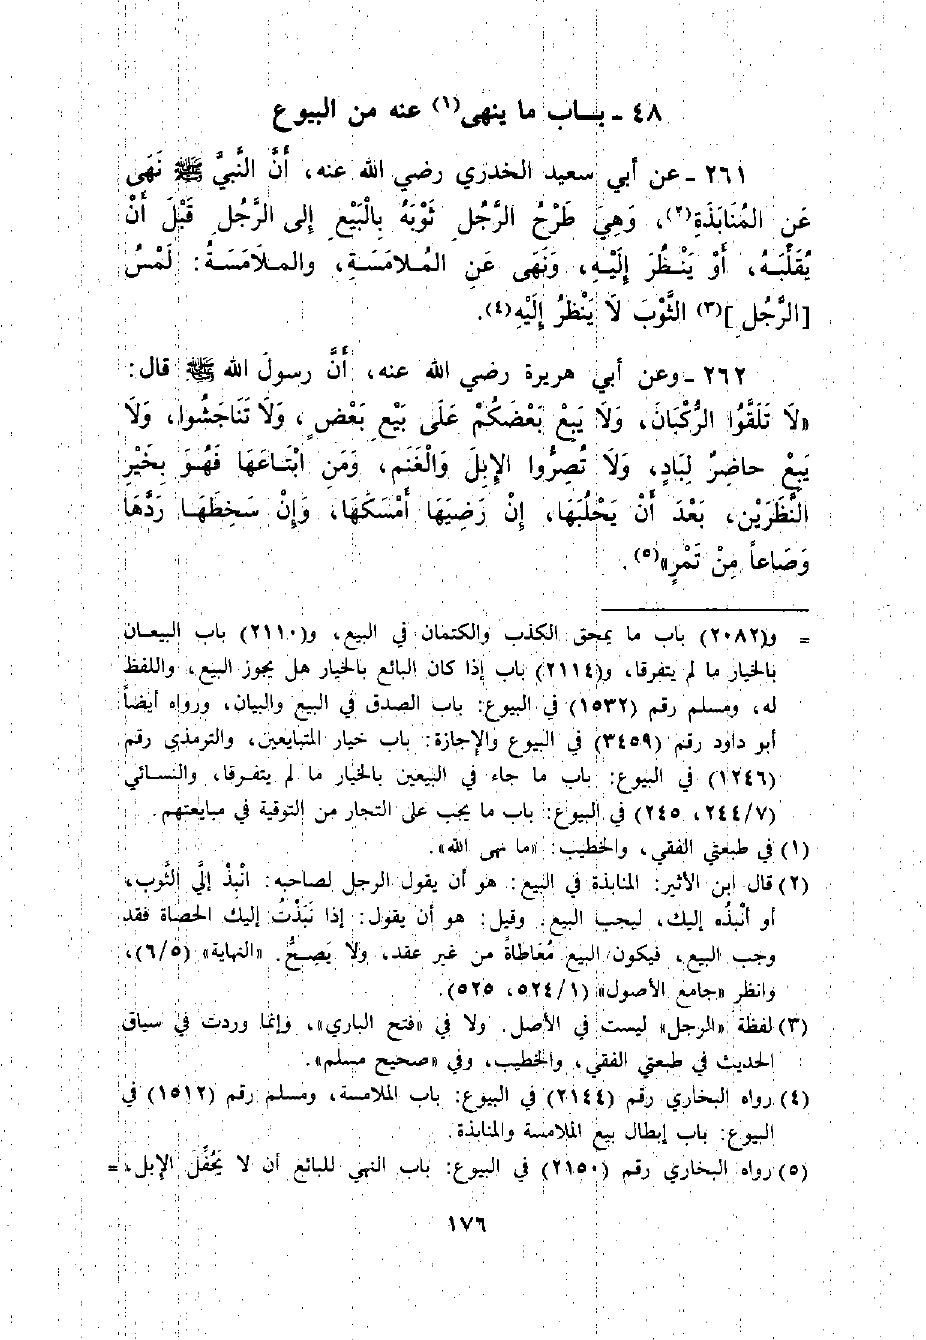 ٤٨ - بـاب ما ينهى(١) عنه من البيوع
٢٦١ - عن أبي سعيد الخدري رضي الله عنه، أَنَّ النَّبِيَّ ﷺ نَهَى
عَنِ المُنَابَذَةِ(٢)، وَهِيَ طَرْحُ الرَّجُلِ ثَوْبَهُ بِالْبَيْعِ إِلى الرَّجُلِ قَبْلَ أَنْ
يُقَلِّبَهُ، أَوْ يَنْظُرَ إِلَيْهِ، وَنَهَى عَنِ المُلامَسَةِ، والملَامَسَةُ: لَمْسُ
[الرَّجُلِ](٣) الثَّوْبَ لَا يَنْظُرُ إِلَيْهِ(٤).
٢٦٢ - وعن أبي هريرة رضي الله عنه، أَنَّ رسولَ الله ﷺ قال:
«لَا تَلَقَّوُا الرُّكْبَانَ، وَلَا يَبِعْ بَعْضُكُمْ عَلَى بَيْعِ بَعْضٍ، وَلَا تَنَاجَشُوا، وَلَا
يَبِعْ حاضِرٌ لِبَادٍ، وَلَا تُصِرُّوا الإِبِلَ وَالْغَنَمِ، وَمَنِ ابْتَاعَهَا فَهُوَ بِخَيْرِ
النَّظَرَيْنِ، بَعْدَ أَنْ يَحْلُبَهَا، إِنْ رَضِيَهَا أَمْسَكَهَا، وَإِنْ سَخِطَهَا رَدَّهَا
وَصَاعاً مِنْ تَمْرٍ»(٥).
= و(٢٠٨٢) باب ما يمحق الكذب والكتمان في البيع، و(٢١١٠) باب البيعان
بالخيار ما لم يتفرقا، و(٢١١٤) باب إذا كان البائع بالخيار هل يجوز البيع، واللفظ
له، ومسلم رقم (١٥٣٢) في البيوع: باب الصدق في البيع والبيان، ورواه أيضاً
أبو داود رقم (٣٤٥٩) في البيوع والإجازة: باب خيار المتبايعين، والترمذي رقم
(١٢٤٦) في البيوع: باب ما جاء في البيعين بالخيار ما لم يتفرقا، والنسائي
(٢٤٤/٧، ٢٤٥) في البيوع: باب ما يجب على التجار من التوقية في مبايعتهم.
(١) في طبعتي الفقي، والخطيب: «ما نهى الله».
(٢) قال ابن الأثير: المنابذة في البيع: هو أن يقول الرجل لصاحبه: انْبِذْ إليَّ الثَّوب،
أو أَنْبِذُه إليك، ليجب البيع. وقيل: هو أن يقول: إذا نَبَذْتُ إليك الحصاة فقد
وجب البيع، فيكون البيع مُعَاطاةً من غير عقد، ولا يَصِحُّ. «النهاية» (٦/٥)،
وانظر «جامع الأصول» (٥٢٤/١، ٥٢٥).
(٣) لفظة «الرجل» ليست في الأصل. ولا في «فتح الباري»، وإنما وردت في سياق
الحديث في طبعتي الفقي، والخطيب، وفي «صحيح مسلم».
(٤) رواه البخاري رقم (٢١٤٤) في البيوع: باب الملامسة، ومسلم رقم (١٥١٢) في
البيوع: باب إبطال بيع الملامسة والمنابذة.
(٥) رواه البخاري رقم (٢١٥٠) في البيوع: باب النهي للبائع أن لا يُحَفِّلَ الإبل، =
١٧٦